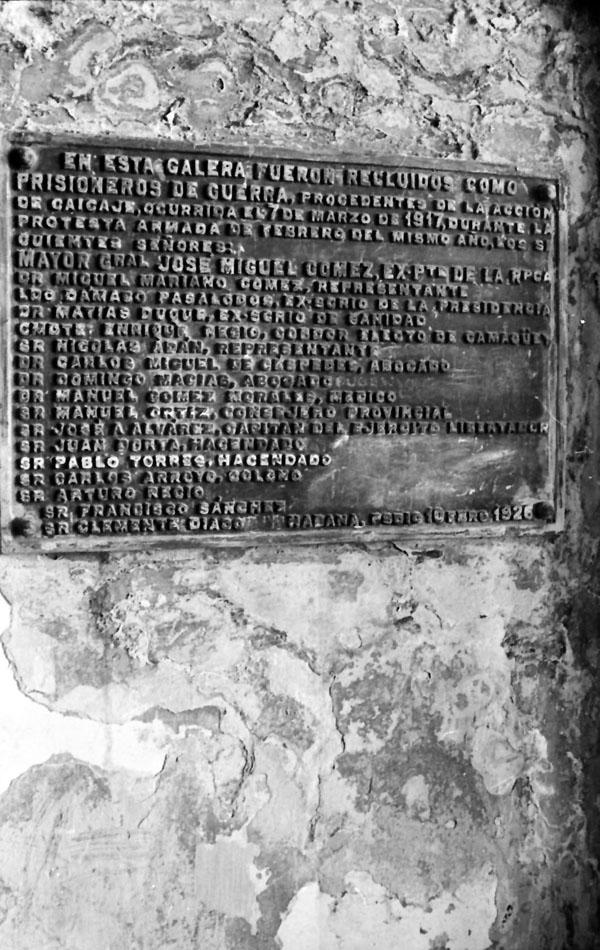 EN ESTA GALERA FUERON RECLUIDOS COMO
PRISIONEROS DE GUERRA, PROCEDENTES DE LA ACCION
DE CAICAJE, OCURRIDA EL 7 DE MARZO DE 1917, DURANTE LA
PROTESTA ARMADA DE FEBRERO DEL MISMO AÑO, LOS SI
GUIENTES SEÑORES:
MAYOR GRAL JOSE MIGUEL GOMEZ, EX-PTE DE LA RPCA
DR MIGUEL MARIANO GOMEZ, REPRESENTANTE
LDO DAMASO PASALODOS, EX-SCRIO DE LA PRESIDENCIA
DR MATIAS DUQUE, EX-SCRIO DE SANIDAD
CMDTE ENRIQUE RECIO, GOBDOR ELECTO DE CAMAGÜEY
SR NICOLAS ADAN, REPRESENTANTE
DR CARLOS MIGUEL DE CESPEDES, ABOGADO
DR DOMINGO MACIAS, ABOGADO
SR MANUEL GOMEZ MORALES, MEDICO
SR MANUEL ORTIZ, CONSEJERO PROVINCIAL
SR JOSE A ALVAREZ, CAPITAN DEL EJERCITO LIBERTADOR
SR JUAN PORTA, HACENDADO
SR PABLO TORRES, HACENDADO
SR CARLOS ARROYO, COLONO
SR ARTURO RECIO
SR FRANCISCO SANCHEZ
SR CLEMENTE DIAGO HABANA, 1926